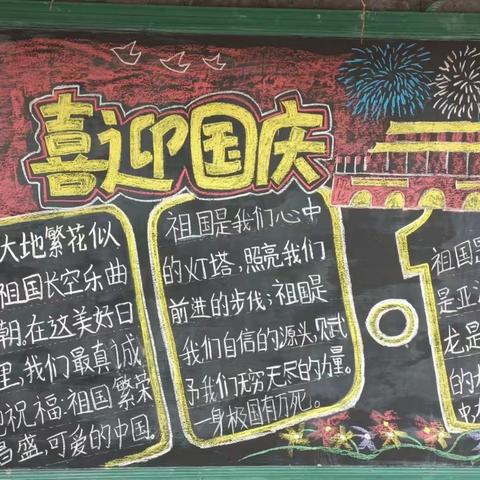 喜迎国庆
大地繁花似
祖国长空乐曲
朝。在这美好日
里,我们最真诚
的祝福:祖国繁荣
昌盛,可爱的中国。
祖国是我们心中
的灯塔,照亮我们
前进的步伐;祖国是
我们自信的源头,赋
予我们无穷无尽的力量。
一身极国有万死。
祖国
是亚
龙是
的
中